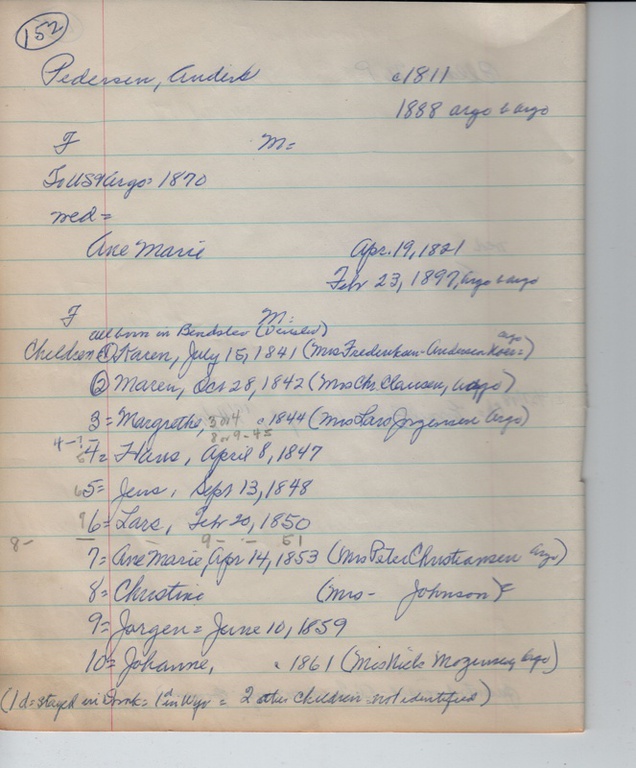 152
Pedersen, Anders c1811
1888 argo b argo
F M=
To US & Argo= 1870
med=
Ane Marie Apr. 19, 1821
Feb 23, 1897, argo b argo
F M=
all born in Bindslev (Vensslev)
Children= ① Karen, July 15, 1841 (Mrs Frederiksen-Andersen argo)
② Maren, Oct 28, 1842 (Mrs Chr. Clausen, argo)
3= Margrethe, 3 or 4 c1844 (Mrs Lars Jorgensen argo)
8 or 9-45
4-? 4= Hans, April 8, 1847
5= Jens, Sept 13, 1848
6= Lars, Feb 20, 1850
8- 9- - 51
7= Ane Marie, Apr 14, 1853 (Mrs Peter Christiansen argo)
8= Christine (Mrs- Johnson)
9= Jorgen= June 10, 1859
10= Johanne, c1861 (Mrs Nick Mogensen argo)
(1d= stayed in Dmk= 1d in Wyo = 2 other children not identified)